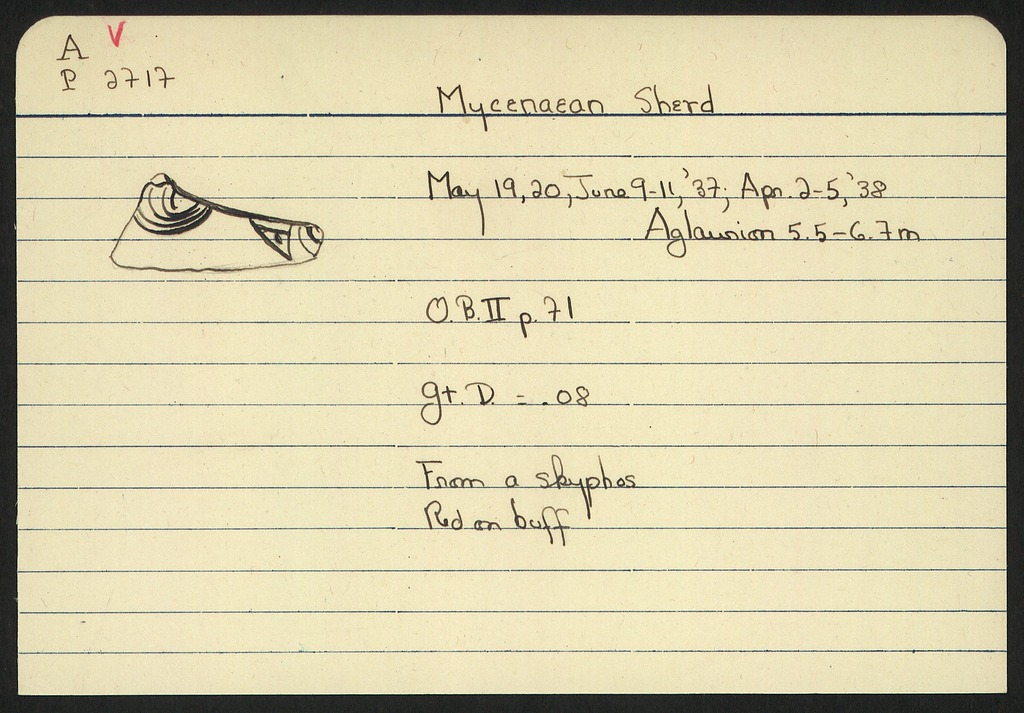 A V
P 2717
Mycenaean Sherd
May 19,20, June 9-11, '37; Apr. 2-5, '38
Aglaurion 5.5-6.7m
O.B.II p. 71
gt. D. = .08
From a skyphos
Red on buff